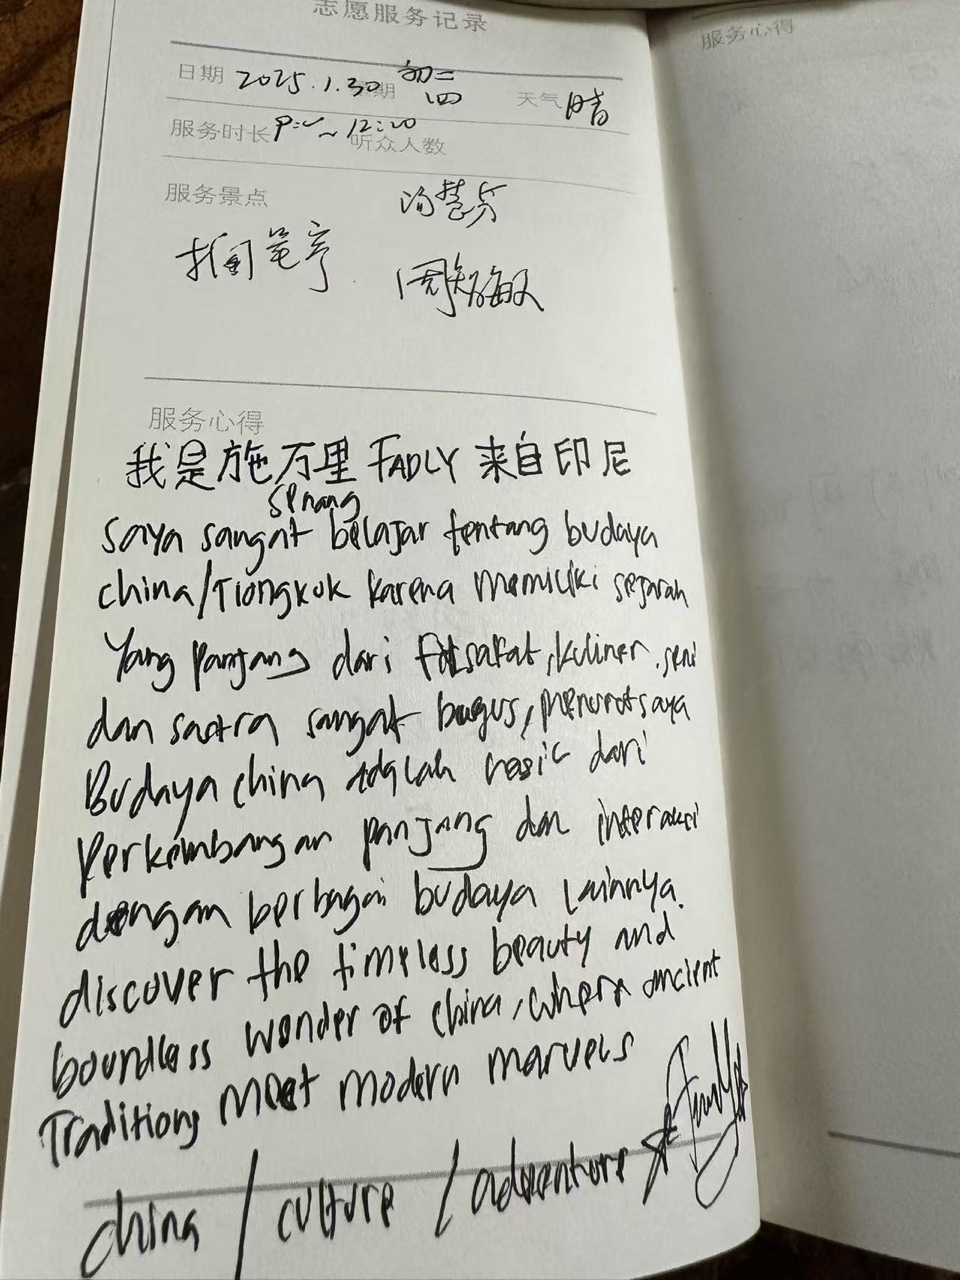 志愿服务记录
服务心得
日期 2025.1.30 期 初二 四 天气 晴
服务时长 ~ 12:20 听众人数
服务景点
搁笔亭 周敏
服务心得
我是施万里 FADLY 来自印尼
senang
saya sangat belajar tentang budaya
china/Tiongkok karena memiliki sejarah
Yang panjang dari filsafat, kuliner, seni
dan sastra sangat bagus, menurut saya
Budaya china adalah hasil dari
Perkembangan panjang dan interaksi
dengan berbagai budaya lainnya.
discover the timeless beauty and
boundless wonder of china, where ancient
Traditions Meet modern marvels
china / culture / adventure